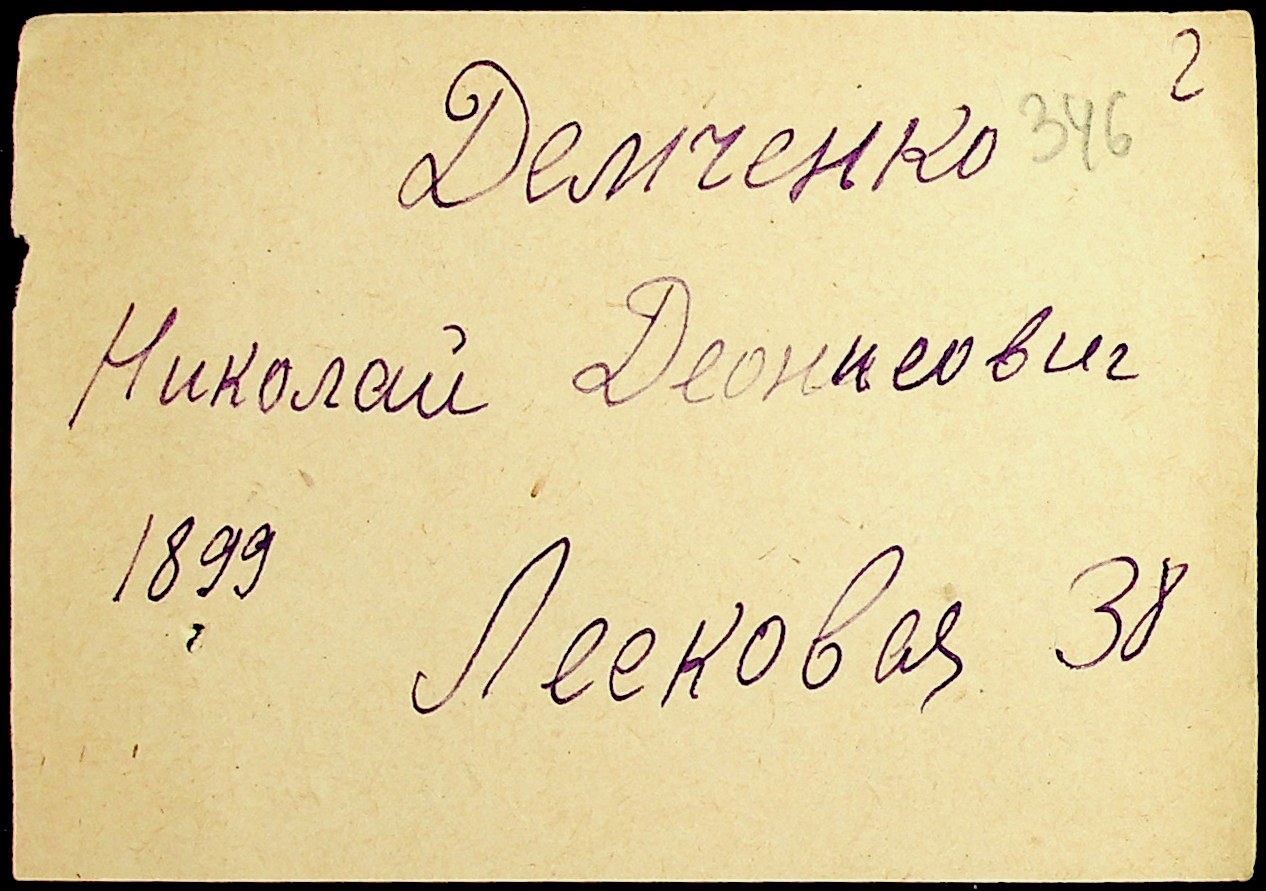 2
Демченко 346
Николай Деонисович
1899 г
Лесковая 38